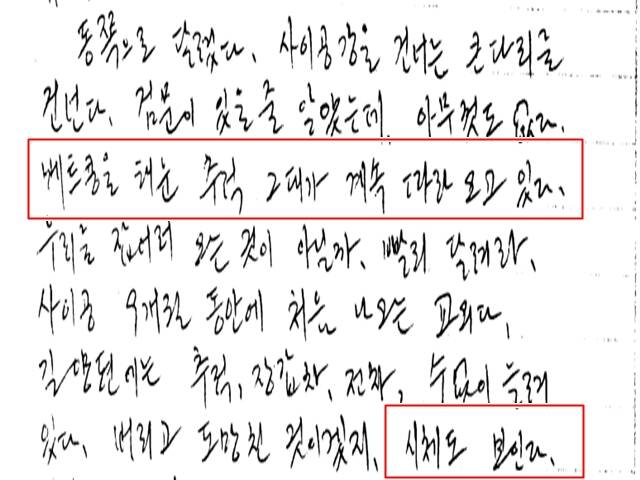 동쪽으로 달렸다. 사이공강을 건너는 큰다리를
건넌다. 검문이 있을줄 알았는데 아무것도 없다.
베트콩을 태운 추럭 그대가 계속 따라 오고 있다.
우리를 잡너러 오는 것이 아닐까. 빨리 달려라.
사이공 9개월 동안에 처음 나오는 교외다.
길 양편에는 추럭, 장갑차, 전차, 수없이 늘려
있다. 버리고 도망친 것이겠지. 시체도 보인다.